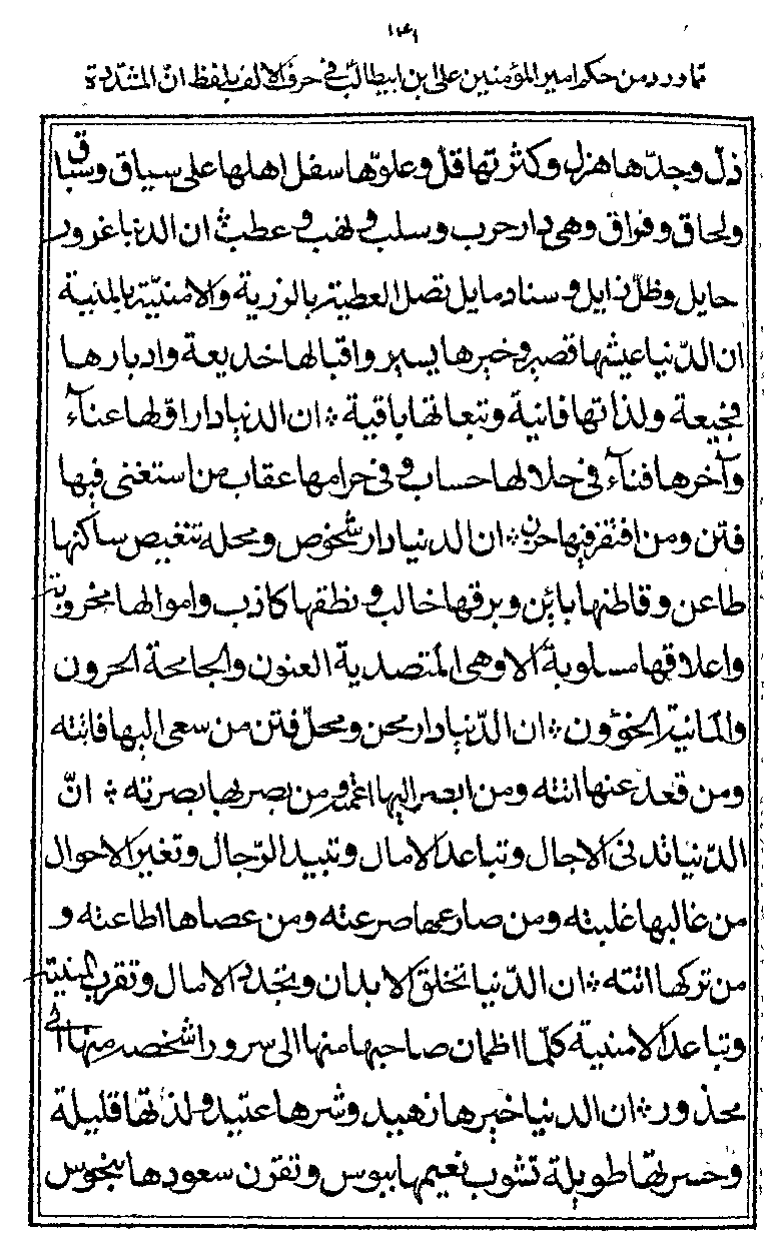 ١٤١
مما ورد من حكم امير المؤمنين علي بن ابيطالب في حرف الالف بلفظ انّ المشدّدة
ذلّ وجدّها هزل وكثرتها قلّ وعلوّها سفل اهلها على سياق وسباق
ولحاق وفراق وهي دار حرب وسلب ونهب وعطب ان الدنيا غرور
حايل وظلّ زايل وسناد مايل تصل العطية بالرزية والامنيّة بالمنية
ان الدّنيا عيشها قصير وخيرها يسير واقبالها خديعة وادبارها
فجيعة ولذاتها فانية وتبعاتها باقية ان الدنيا دار اوّلها عناء
وآخرها فناء في حلالها حساب وفي حرامها عقاب من استغنى فيها
فتن ومن افتقر فيها حزن ان الدنيا دار شخوص ومحلة تنغيص ساكنها
ظاعن وقاطنها بائن وبرقها خالب ونطقها كاذب واموالها مخروبة
واعلاقها مسلوبة الا وهي المتصدية العنون والجامحة الحرون
والمانية الخؤون ان الدّنيا دار محن ومحلّ فتن من سعى اليها فاتته
ومن قعد عنها اتته ومن ابصر اليها اعمته ومن بصر بها بصرته انّ
الدّنيا تدنى الاجال وتباعد الامال وتبيد الرّجال وتغير الاحوال
من غالبها غلبته ومن صارعها صرعته ومن عصاها اطاعته و
من تركها اتته ان الدّنيا تخلق الابدان وتجدد الامال وتقرب المنية
وتباعد الامنية كلّما اطمان صاحبها منها الى سرور اشخصه منها الى
محذور ان الدنيا خيرها زهيد وشرها عتيد ولذتها قليلة
وحسرتها طويلة تشوب نعيمها ببوس وتقرن سعودها بنحوس